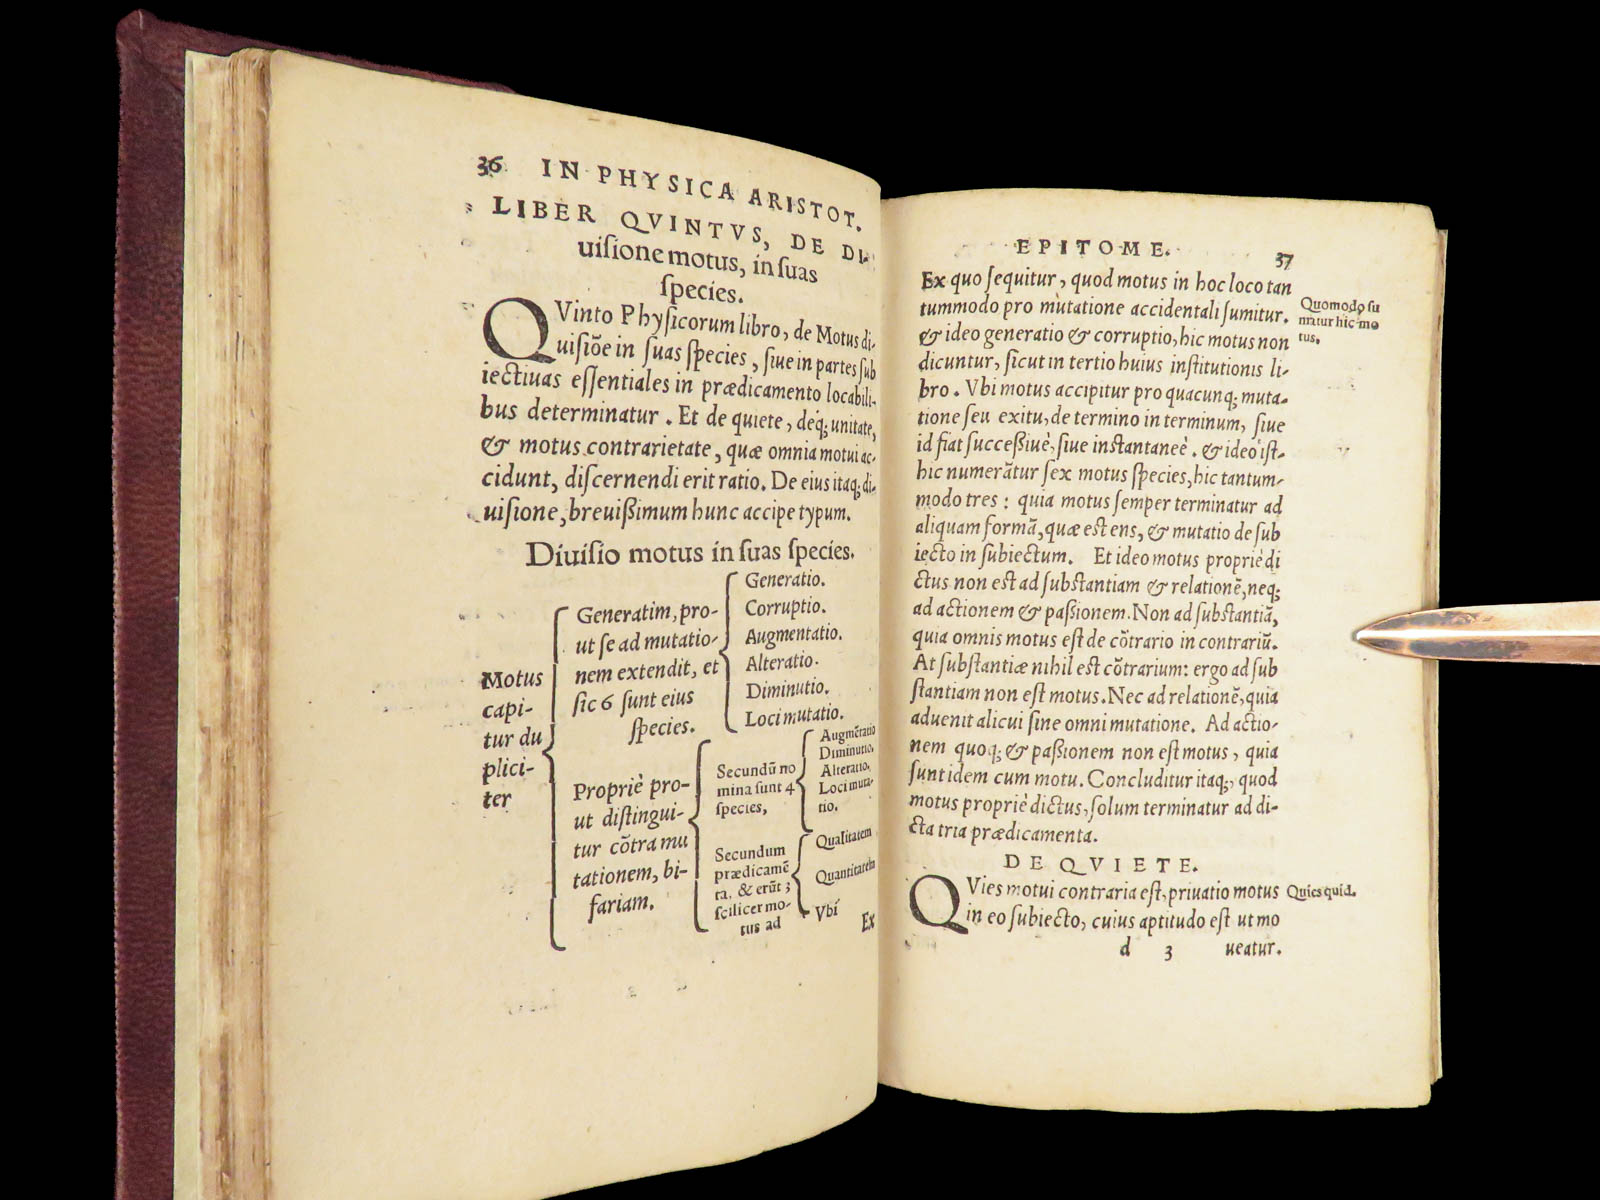 36 IN PHYSICA ARISTOT.
LIBER QVINTVS, DE DI-
uiſione motus, in ſuas
ſpecies.
QVinto Phyſicorum libro, de Motus di-
uiſiõe in ſuas ſpecies, ſiue in partes ſub
iectiuas eſſentiales in prædicamento locabili-
bus determinatur. Et de quiete, deq; unitate,
& motus contrarietate, quæ omnia motui ac-
cidunt, diſcernendi erit ratio. De eius itaq; di-
uiſione, breuißimum hunc accipe typum.
Diuiſio motus in ſuas ſpecies.
Motus
capi-
tur du
plici-
ter
Generatim, pro-
ut ſe ad mutatio-
nem extendit, et
ſic 6 ſunt eius
ſpecies.
Generatio.
Corruptio.
Augmentatio.
Alteratio.
Diminutio.
Loci mutatio.
Propriè pro-
ut diſtingui-
tur cõtra mu
tationem, bi-
fariam.
Secundũ no
mina ſunt 4
ſpecies,
Augmẽtatio
Diminutio.
Alteratio.
Loci muta-
tio.
Secundum
prædicamẽ
ta, & erũt 3
ſcilicet mo-
tus ad
Qualitatem
Quantitatem
Vbi
Ex
EPITOME. 37
Ex quo ſequitur, quod motus in hoc loco tan
tummodo pro mutatione accidentali ſumitur.
& ideo generatio & corruptio, hic motus non
dicuntur, ſicut in tertio huius inſtitutionis li-
bro. Vbi motus accipitur pro quacunq; muta-
tione ſeu exitu, de termino in terminum, ſiue
id fiat ſucceßiuè, ſiue inſtantaneè. & ideo iſt-
hic numerãtur ſex motus ſpecies, hic tantum-
modo tres: quia motus ſemper terminatur ad
aliquam formã, quæ eſt ens, & mutatio de ſub
iecto in ſubiectum. Et ideo motus propriè di
ctus non eſt ad ſubſtantiam & relationẽ, neq;
ad actionem & paßionem. Non ad ſubſtantiã,
quia omnis motus eſt de cõtrario in contrariũ.
At ſubſtantiæ nihil eſt cõtrarium: ergo ad ſub
ſtantiam non eſt motus. Nec ad relationẽ, quia
aduenit alicui ſine omni mutatione. Ad actio-
nem quoq; & paßionem non eſt motus, quia
ſunt idem cum motu. Concluditur itaq;, quod
motus propriè dictus, ſolum terminatur ad di-
cta tria prædicamenta.
Quomodo ſu
matur hic mo
tus.
DE QVIETE.
QVies motui contraria eſt, priuatio motus
in eo ſubiecto, cuius aptitudo eſt ut mo
Quies quid.
d 3 ueatur.